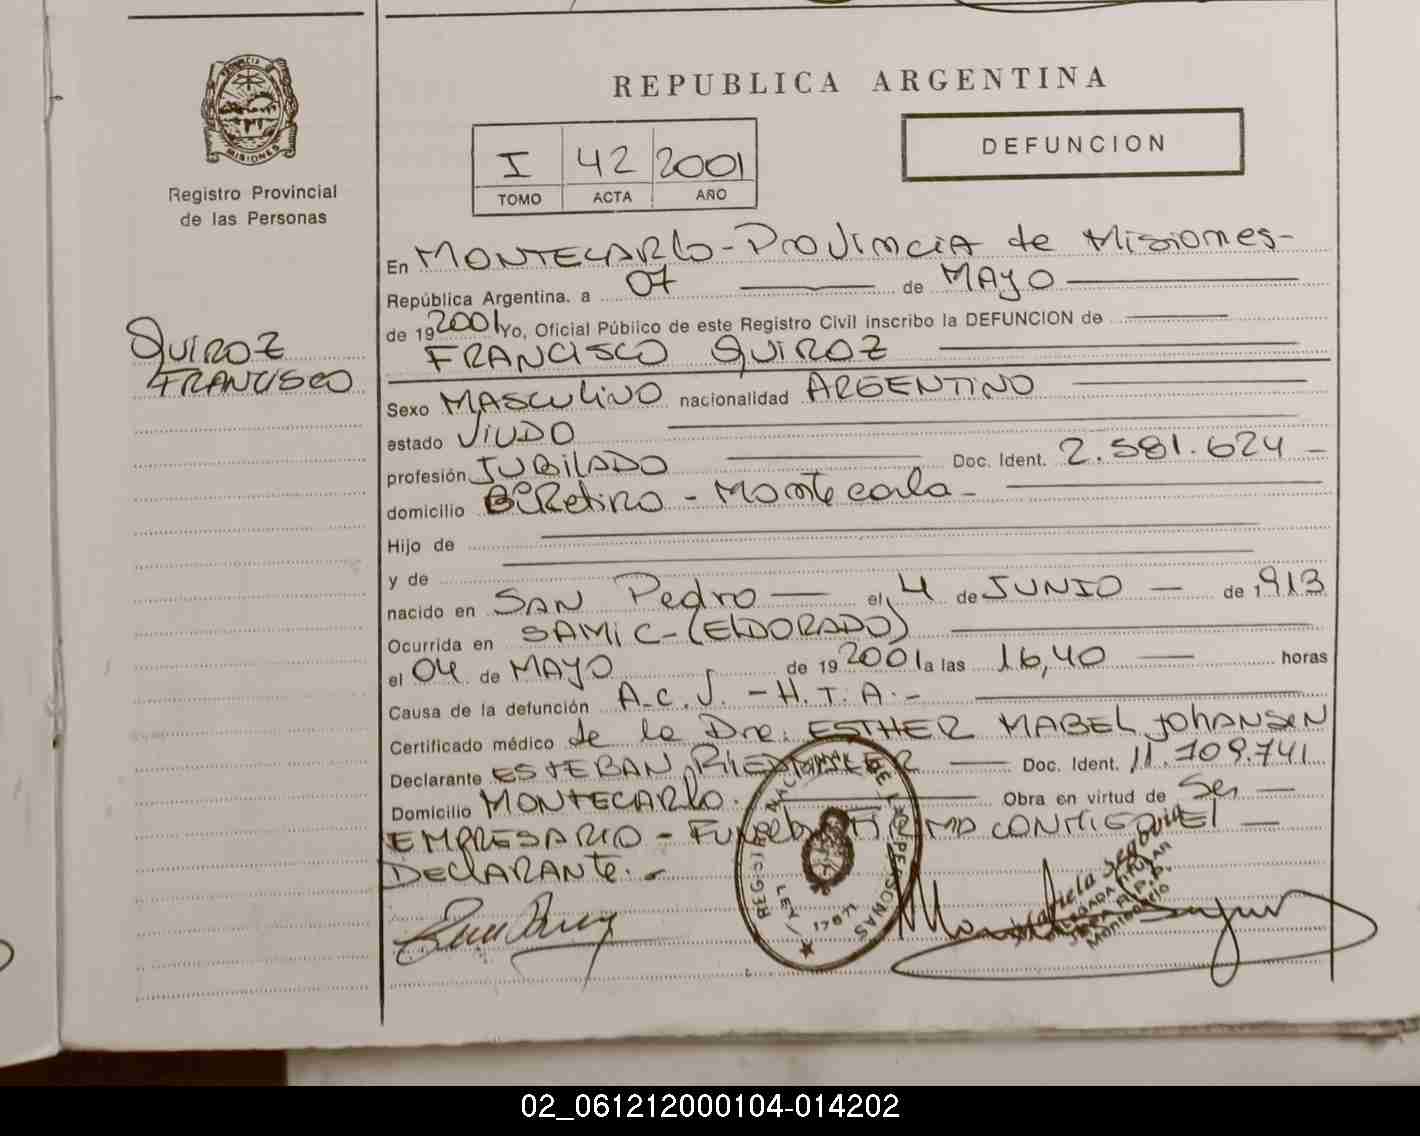 PROVINCIA DE
MISIONES
Registro Provincial
de las Personas
QUIROZ
FRANCISCO
REPUBLICA ARGENTINA
I 42 2001
TOMO ACTA AÑO
DEFUNCION
En MONTECARLO - Provincia de Misiones-
República Argentina. a 07 de MAYO
de 19 2001 Yo, Oficial Público de este Registro Civil inscribo la DEFUNCION de
FRANCISCO QUIROZ
Sexo MASCULINO nacionalidad ARGENTINO
estado VIUDO
profesión JUBILADO Doc. Ident. 2.581.624 -
domicilio Bº Retiro - Montecarlo -
Hijo de
y de
nacido en SAN Pedro - el 4 de JUNIO - de 1913
Ocurrida en SAMIC - (ELDORADO)
el 04 de MAYO de 19 2001 a las 16,40 - horas
Causa de la defunción A.C.V. - H.T.A. -
Certificado médico de la Dra. ESTHER MABEL JOHANSEN
Declarante ESTEBAN Doc. Ident. 11.709.741
Domicilio MONTECARLO. Obra en virtud de Ser -
EMPRESARIO - FIRMA CONMIGO EL -
DECLARANTE. -
REGISTRO NACIONAL DE LAS PERSONAS
LEY 17671
02_061212000104-014202